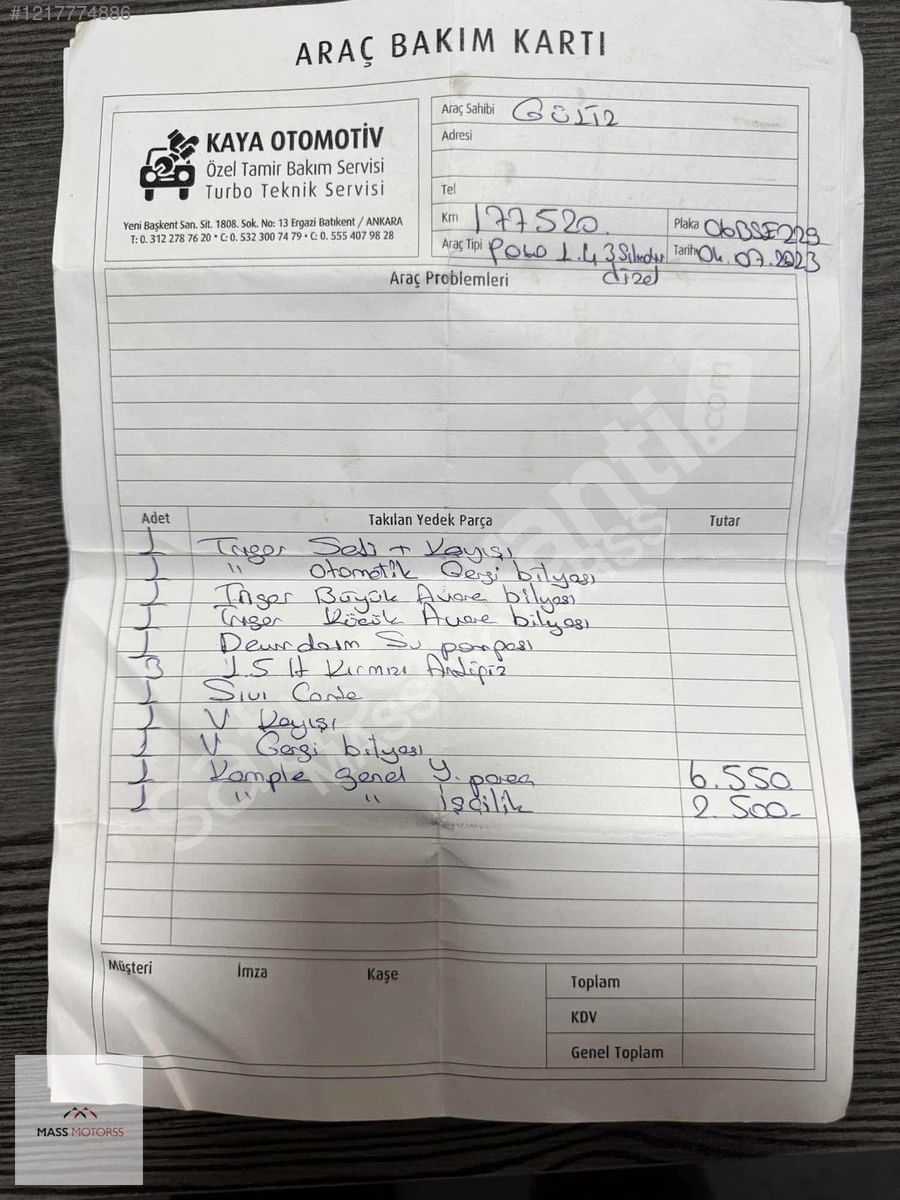 #1217774886
ARAÇ BAKIM KARTI
KAYA OTOMOTİV
Özel Tamir Bakım Servisi
Turbo Teknik Servisi
Yeni Başkent San. Sit. 1808. Sok. No: 13 Ergazi Batıkent / ANKARA
T: 0. 312 278 76 20 • C: 0. 532 300 74 79 • C: 0. 555 407 98 28
Araç Sahibi
Adresi
Tel
Km 177520. Plaka 06BSE229
Araç Tipi POLO 1.4 3Silindir Tarih 04.07.2023
dizel
Araç Problemleri
Adet Takılan Yedek Parça Tutar
1 Triger Seti + Kayışı
1 " Otomatik Gergi bilyası
1 Triger Büyük Avare bilyası
1 Triger Küçük Avare bilyası
1 Devirdaim Su pompası
3 1.5 lt Kırmızı Antifiriz
1 Sıvı Conta
1 V Kayışı
1 V Gergi bilyası
1 Komple genel Y. parça 6.550
1 " " İşçilik 2.500-
Müşteri İmza Kaşe
Toplam
KDV
Genel Toplam
sahibinden.com
MASS MOTORSS
MASS MOTORSS